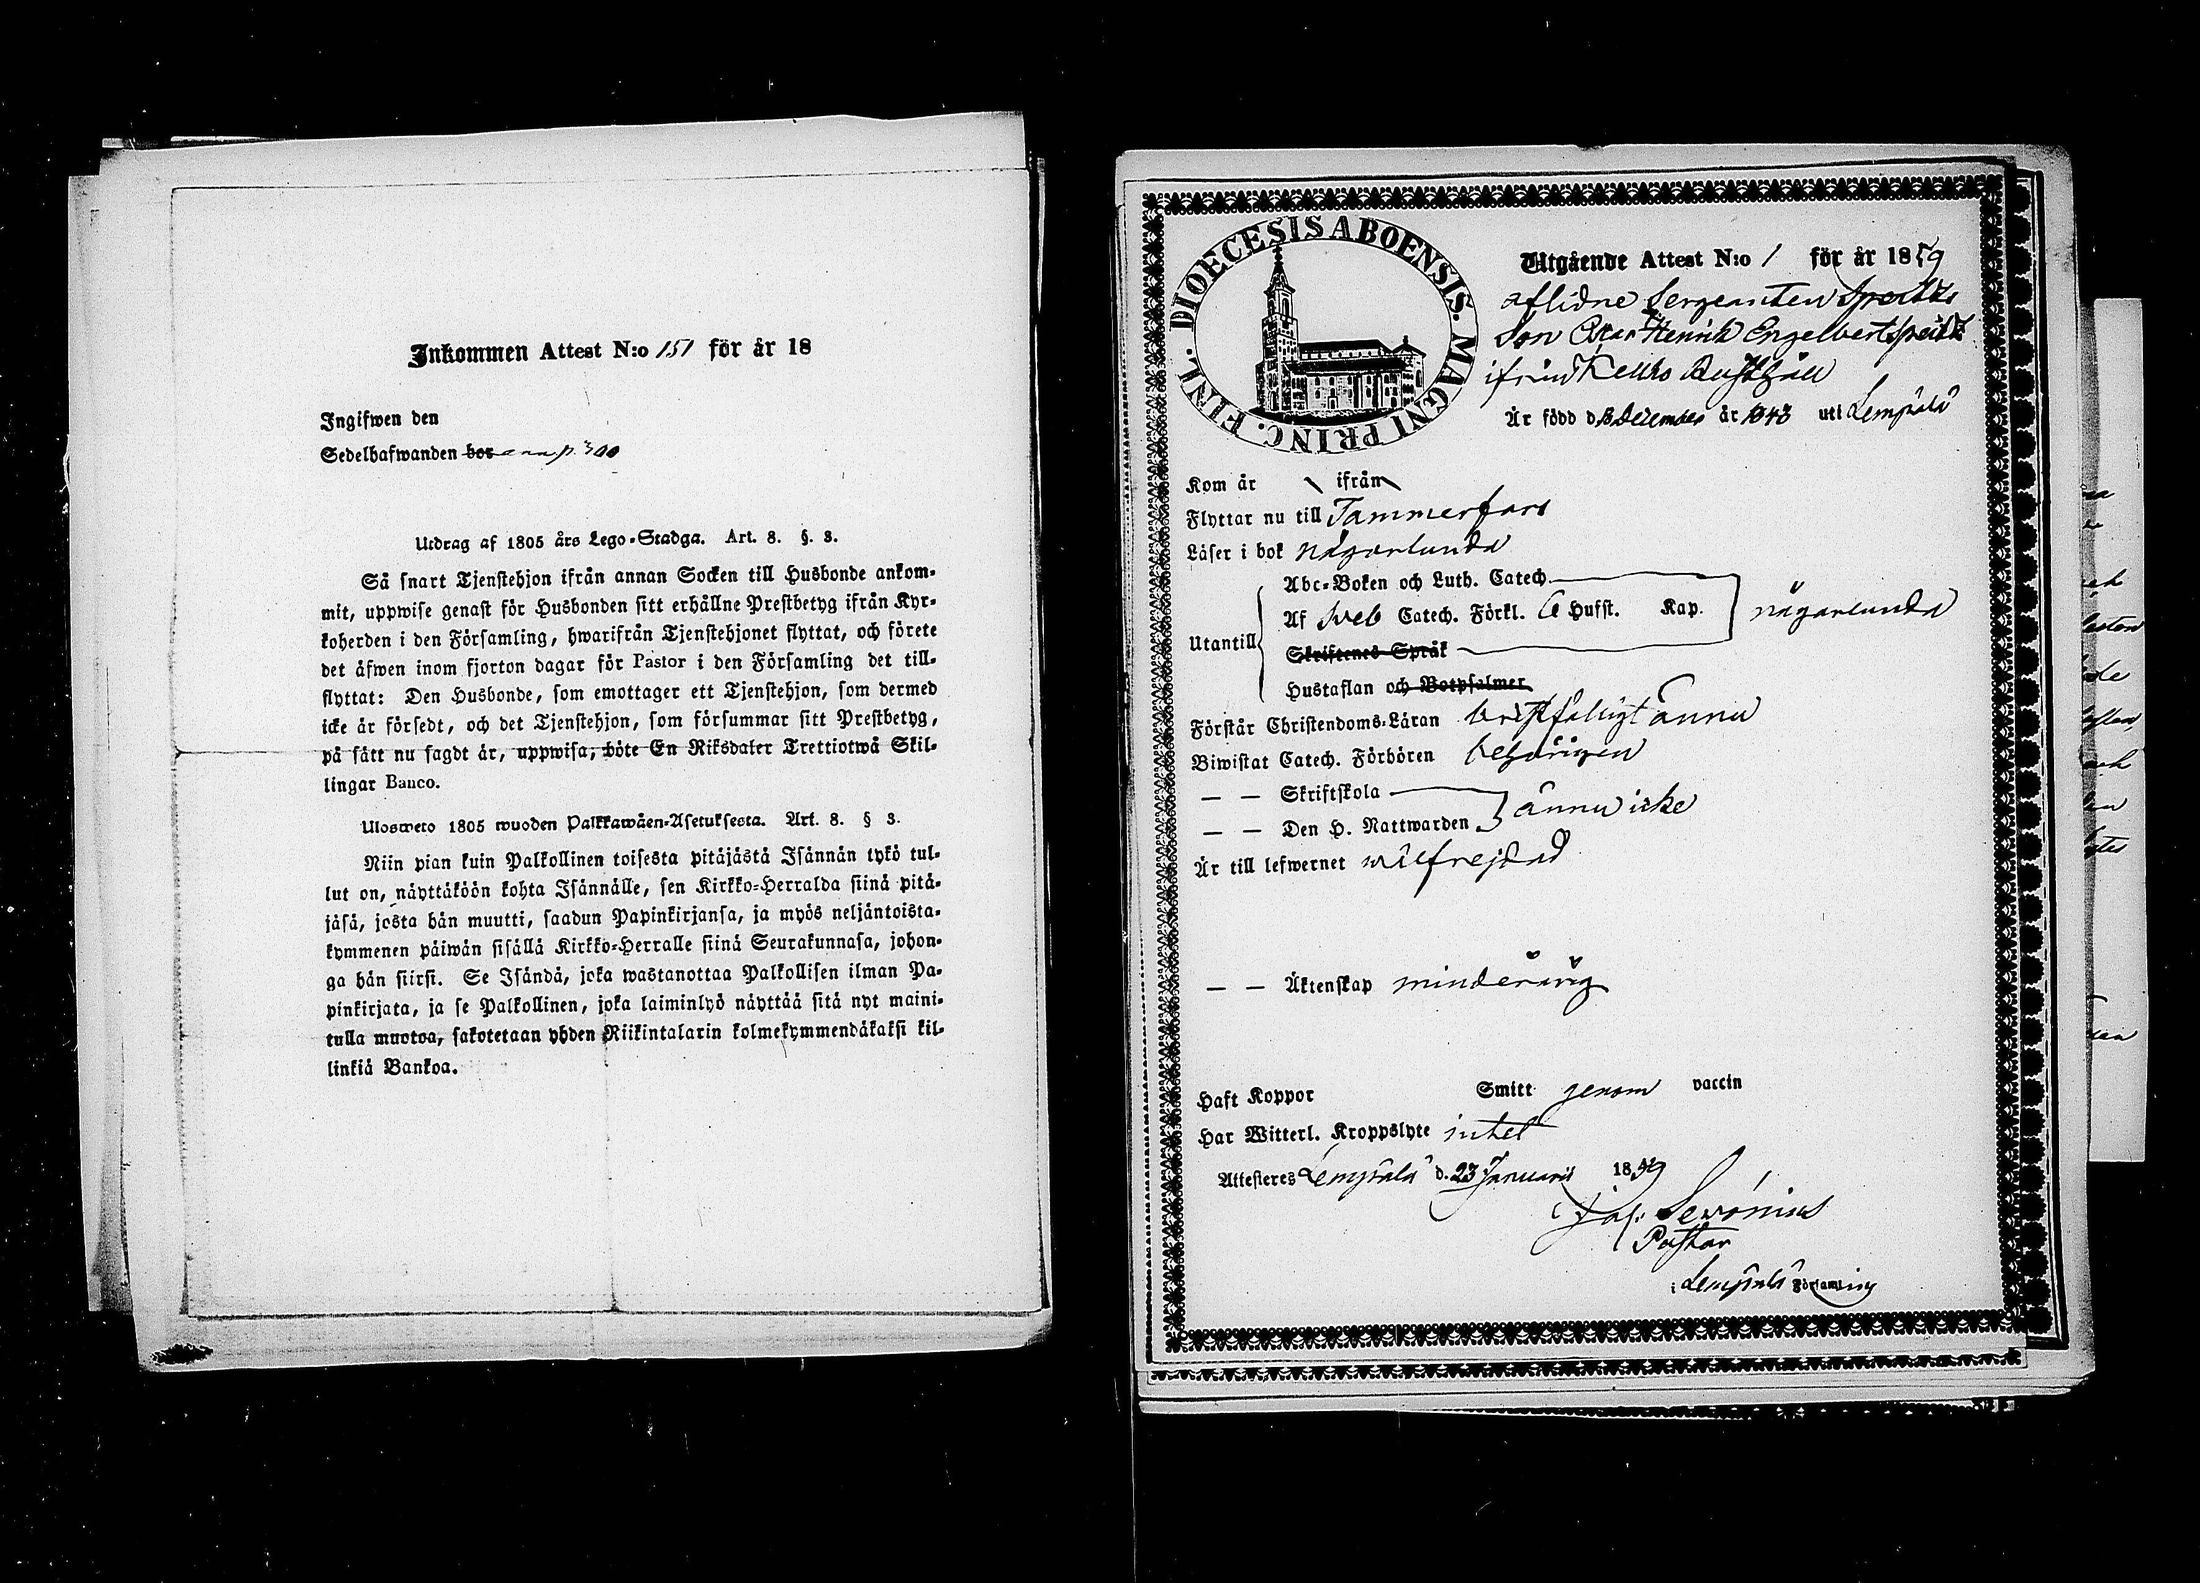 Inkommen Attest N:o 151 för år 18
Ingifwen den
Sedelhafwanden bor ann p. 300
Utdrag af 1805 års Lego-Stadga. Art. 8. §. 3.
Så snart Tjenstehjon ifrån annan Socken till Husbonde ankom-
mit, uppwise genast för Husbonden sitt erhållne Prestbetyg ifrån Kyr-
koherden i den Församling, hwarifrån Tjenstehjonet flyttat, och förete
det äfwen inom fjorton dagar för Pastor i den Församling det till-
flyttat: Den Husbonde, som emottager ett Tjenstehjon, som dermed
icke är försedt, och det Tjenstehjon, som försummar sitt Prestbetyg,
på sätt nu sagdt är, uppwisa, böte En Riksdaler Trettiotwå Skil-
lingar Banco.
Ulosweto 1805 wuoden Palkkawäen-Asetuksesta. Art. 8. § 3.
Niin pian kuin Palkollinen toisesta pitäjästä Isännän tykö tul-
lut on, näyttäköön kohta Isännälle, sen Kirkko-Herralda siinä pitä-
jäsä, josta hän muutti, saadun Papinkirjansa, ja myös neljäntoista-
kymmenen päiwän sisällä Kirkko-Herralle siinä Seurakunnasa, johon-
ga hän siirsi. Se Isändä, joka wastanottaa Palkollisen ilman Pa-
pinkirjata, ja se Palkollinen, joka laiminlyö näyttää sitä nyt maini-
tulla muotoa, sakotetaan yhden Riikintalarin kolmekymmendäkaksi kil-
linkiä Bankoa.
DIOECESIS ABOENSIS. MAGNI PRINC. FINL.
Utgående Attest N:o 1 för år 1859
aflidne Sergeanten
Son Oscar Henrik Engelbert
ifrån Rusthåll
Är född d. December år 1843 uti Lempälä
Kom år ifrån
Flyttar nu till Tammerfors
Läser i bok någorlunda
Abc-Boken och Luth. Catech.
Af Sveb Catech. Förkl. Husst. Kap. någorlunda
Utantill
Skriftenes Språk
Hustaflan och Botpsalmer
Förstår Christendoms-Läran bristfälligt ännu
Biwistat Catech. Förhören behörigen
— — Skriftskola
— — Den H. Nattwarden ännu icke
Är till lefwernet wälfrejdad
— — Äktenskap minderårig
Haft Koppor Smitt genom vaccin
Har Witterl. Kroppslyte intet
Attesteres Lempälä d. 23 Januarii 1859
Serönius
Pastor
i Lempälä Församling